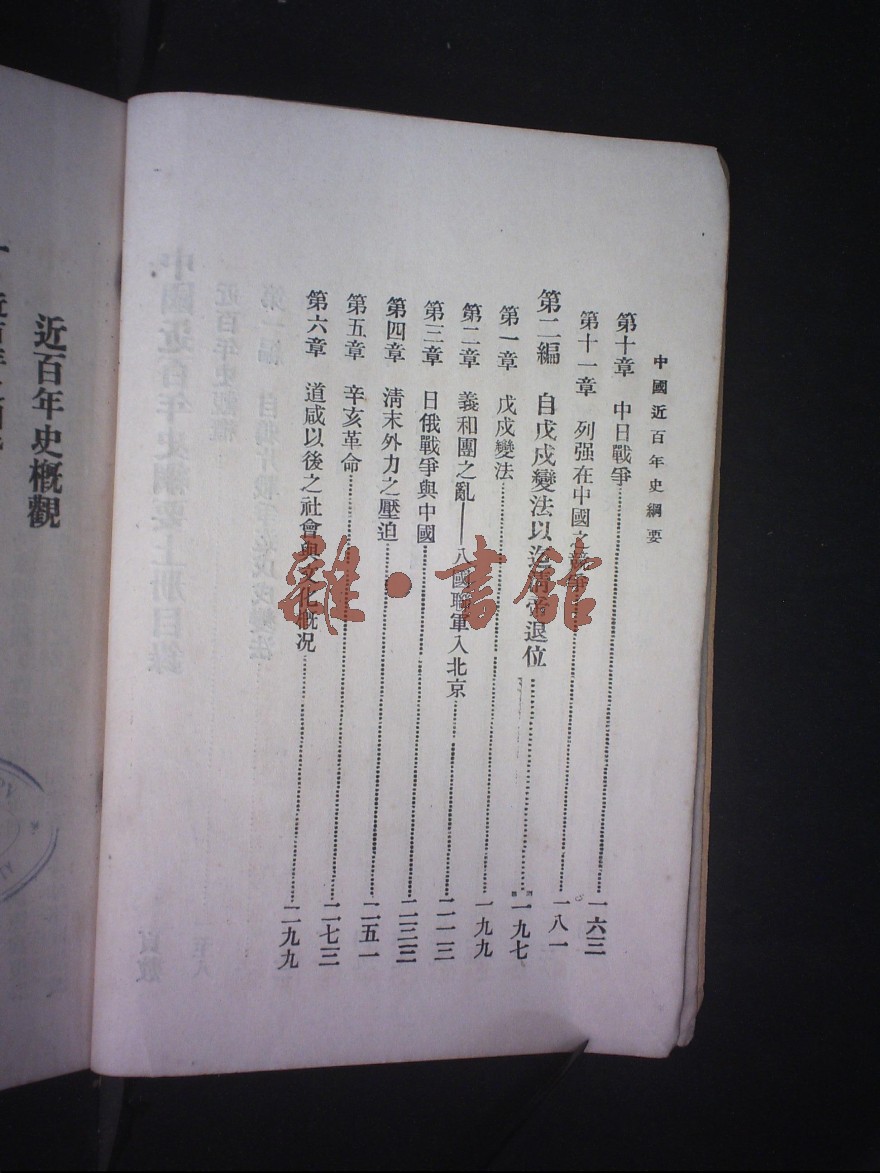 中國近百年史綱要
第十章　中日戰爭……一六三
第十一章　列强在中國之競爭……一八一
第二編　自戊戌變法以迄清帝退位……一九七
第一章　戊戌變法……一九九
第二章　義和團之亂——八國聯軍入北京……二一三
第三章　日俄戰爭與中國……二三三
第四章　淸末外力之壓迫……二五一
第五章　辛亥革命……二七三
第六章　道咸以後之社會與文化概况……二九九
近百年史概觀
雜·書館